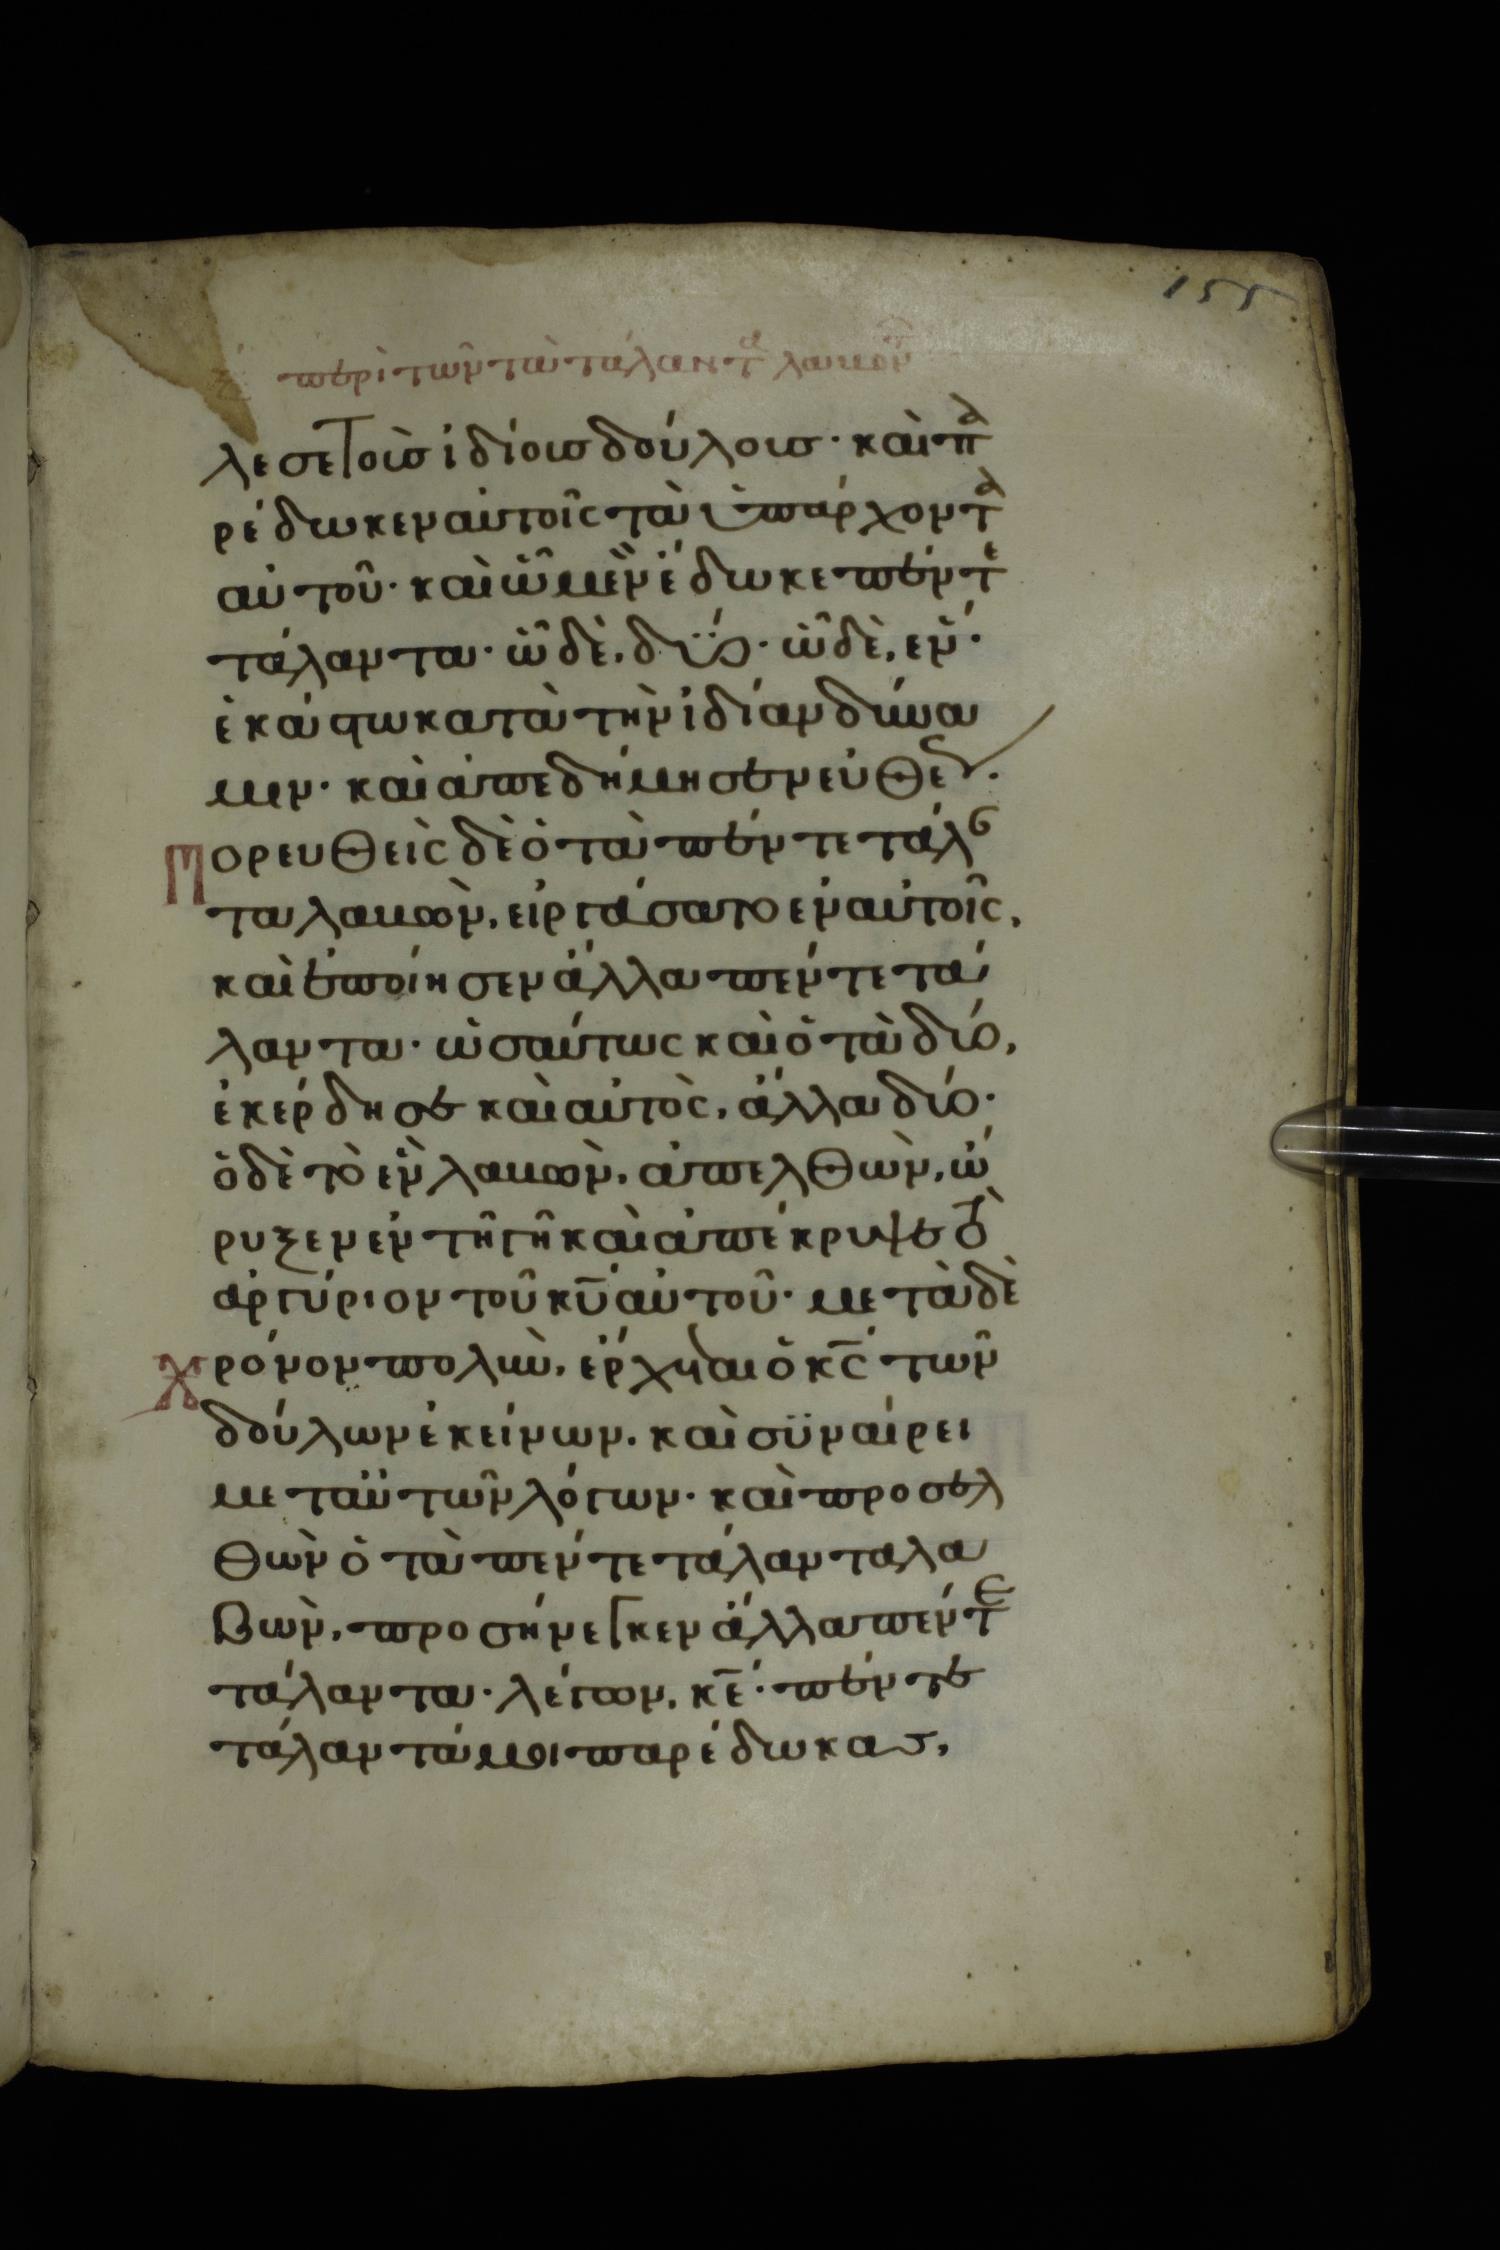 155
περὶ τῶν τὰ τάλαντα λαβόντων
λεσε τοὺσ ἰδίουσ δούλουσ· καὶ πα
ρέδωκεν αὐτοῖς τὰ ὑπάρχοντα
αὐτοῦ· καὶ ὧ μὲν ἔδωκε πέντε
τάλαντα· ὧ δὲ, δύο· ὧ δὲ, ἕν·
ἑκάστω κατὰ τὴν ἰδίαν δύνα
μιν· καὶ ἀπεδήμησεν εὐθέως.
Πορευθεὶς δὲ ὁ τὰ πέντε τάλαν
τα λαβὼν, εἰργάσατο ἐν αὐτοῖς,
καὶ ἐποίησεν ἄλλα πέντε τά
λαντα· ὡσαύτως καὶ ὁ τὰ δύο,
ἐκέρδησε καὶ αὐτὸς, ἄλλα δύο·
ὁ δὲ τὸ ἓν λαβὼν, ἀπελθὼν, ὤ
ρυξεν ἐν τῆ γῆ καὶ ἀπέκρυψε τὸ
ἀργύριον τοῦ κ̅υ̅ αὐτοῦ· μετὰ δὲ
Χρόνον πολὺν, ἔρχεται ὁ κ̅ς̅ τῶν
δούλων ἐκείνων. καὶ συναίρει
μετ αὐτῶν λόγων· καὶ προσελ
θὼν ὁ τὰ πέντε τάλαντα λα
βὼν, προσήνεγκεν ἄλλα πέντε
τάλαντα· λέγων, κ̅ε̅· πέντε
τάλαντά μοι παρέδωκασ,